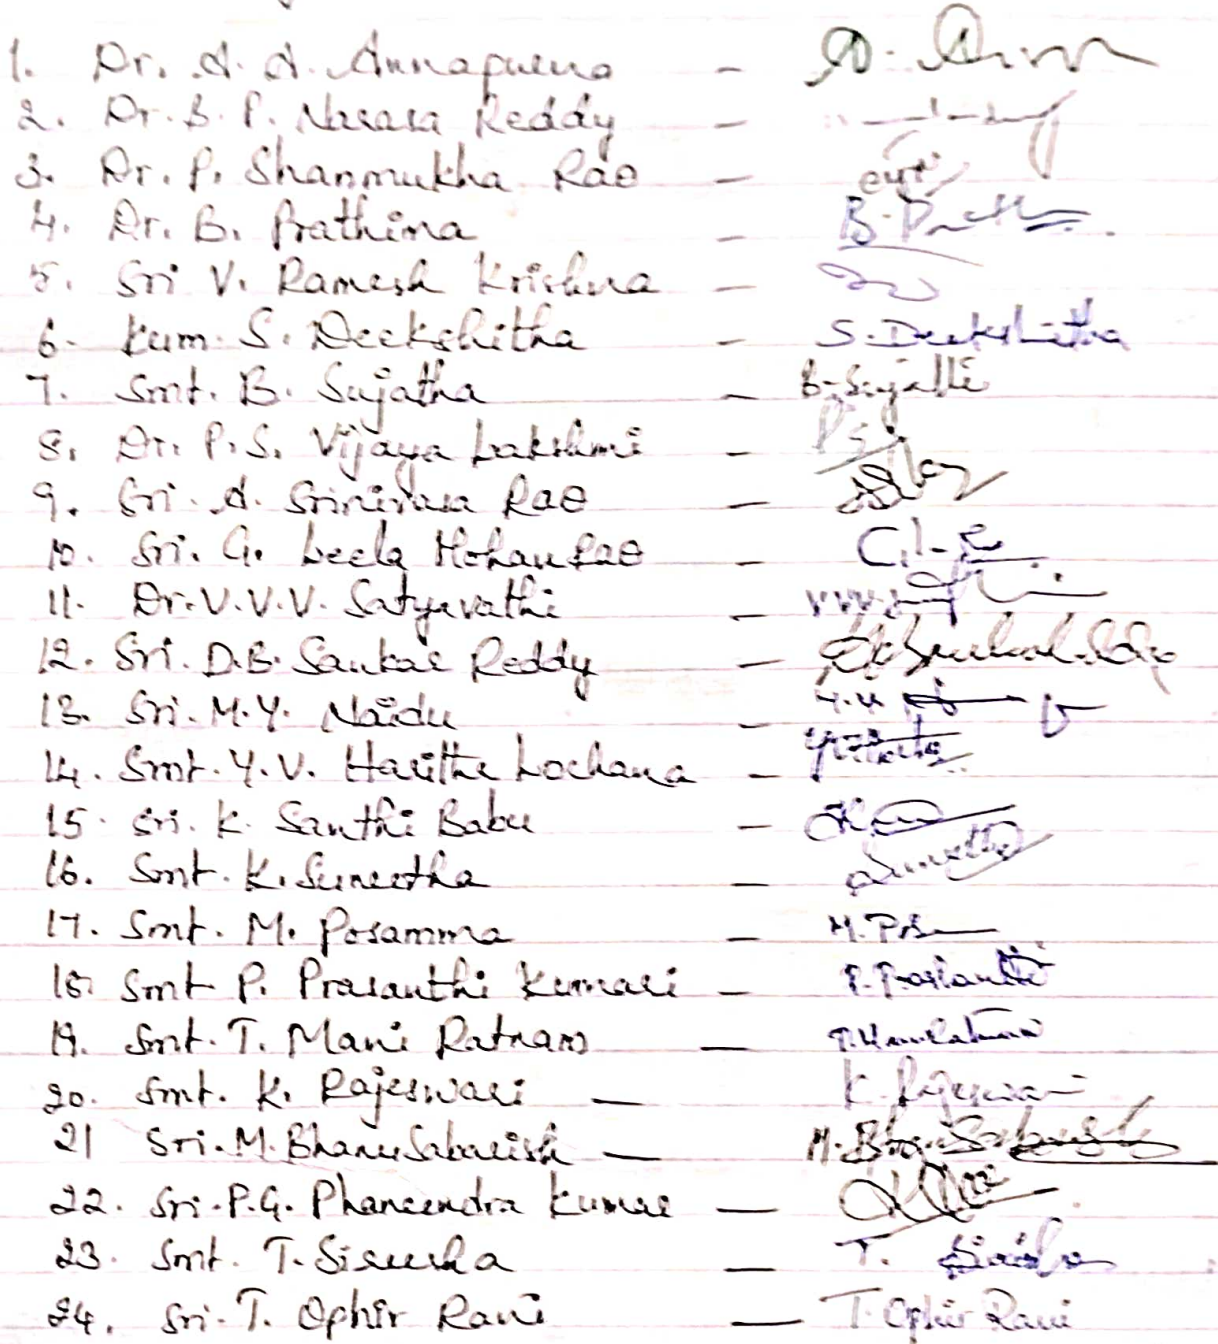 1. Dr. A. A. Annapurna -
2. Dr. B. P. Narasa Reddy -
3. Dr. P. Shanmukha Rao -
4. Dr. B. Prathima - B. Prathi
5. Sri V. Ramesh Krishna -
6. Kum. S. Deekshitha - S. Deekshitha
7. Smt. B. Sujatha - B. Sujatha
8. Dr. P. S. Vijaya Lakshmi -
9. Sri. A. Srinivasa Rao -
10. Sri. G. Leela Mohan Rao -
11. Dr. V. V. V. Satyavathi -
12. Sri. D.B. Sankar Reddy -
13. Sri. M. Y. Naidu -
14. Smt. Y. V. Haritha Lochana -
15. Sri. K. Santhi Babu -
16. Smt. K. Suneetha - Suneetha
17. Smt. M. Posamma - M. Pos
18. Smt P. Prasanthi Kumari - P. Prasanthi
19. Smt. T. Mani Ratnam - T. Mani Ratnam
20. Smt. K. Rajeswari - K. Rajeswari
21 Sri. M. Bhanu Sabarish -
22. Sri. P. G. Phaneendra Kumar -
23. Smt. T. Sireesha - T.
24. Sri. T. Ophir Rani - T. Ophir Rani